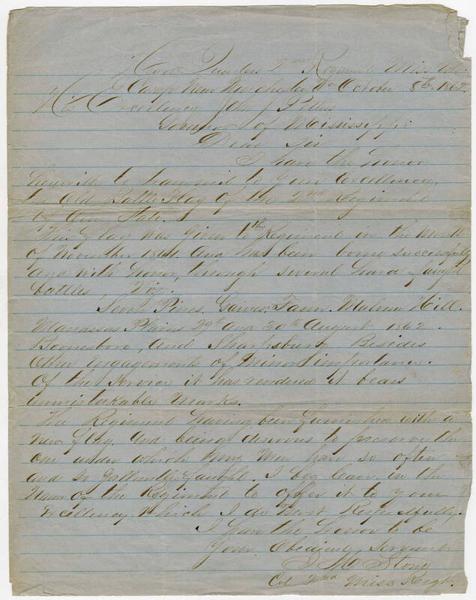 Head Quarters 2nd Regiment Miss Vol
Camp Near Winchester Va October 8th 1862
His Excellency John J Pettus
Governor of Mississippi
Dear Sir
I have the honor
herewith to transmit to your Excellency,
the Old Battle Flag of the 2nd Regiment
of our State.
This Flag was given the Regiment in the Month
of November 1861. And has been borne successfully
and with honor, through several hard fought
battles, Viz.
Seven Pines, Gaines Farm, Malvern Hill,
Manassas Plains 29th and 30th August 1862.
Boonsboro, And Sharpsburg Besides
Other engagements of minor importance.
Of the service it has rendered it bears
unmistakable marks.
The Regiment having been furnished with a
new flag, and being desirous to preserve the
one under which they have so often
and so gallantly fought. I beg leave, in the
Name of the Regiment to offer it to your
Excellency which I do most Respectfully.
I have the honor to be
Your Obedient Servant
J M Stone
Col 2nd Miss Regt.